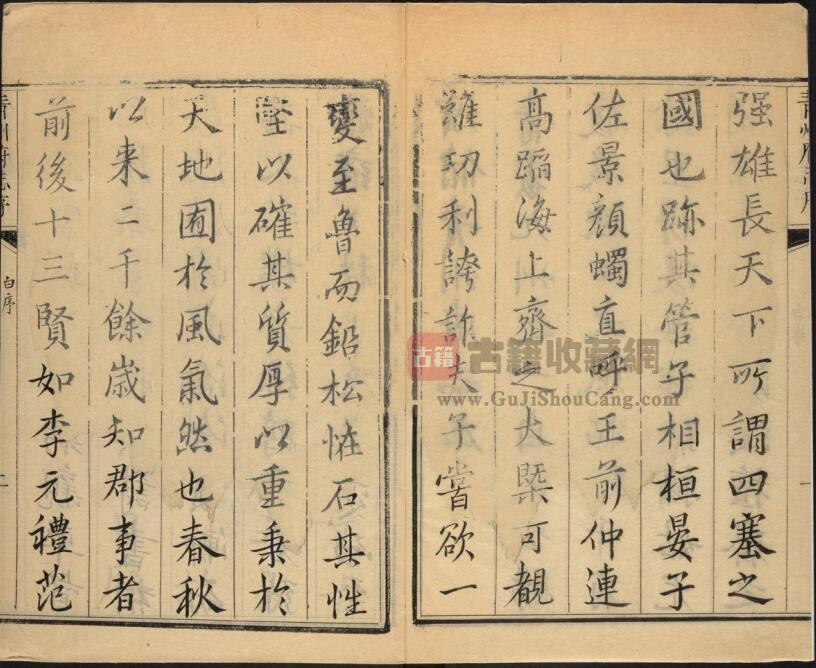 强雄長天下所謂四塞之
國也跡其管子相桓晏子
佐景顏蠋直呼王前仲連
高蹈海上齊之大槩可覩
雖功利誇詐夫子嘗欲一
變至魯而鉛松恠石其性
堅以確其質厚以重秉於
天地囿於風氣然也春秋
以来二千餘歲知郡事者
前後十三賢如李元禮范
青州府志序
白序
古籍
古籍收藏網
www.GuJiShouCang.com